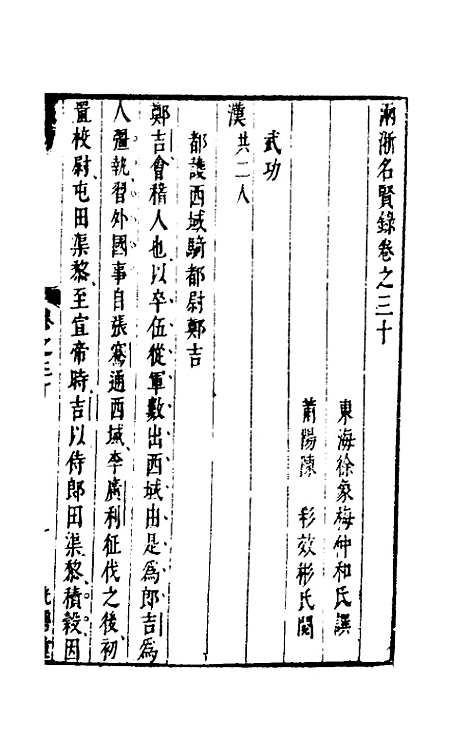 兩浙名賢錄卷之三十
東海徐象梅仲和氏譔
莆陽陳　彩效彬氏閱
武功
漢共二人
都護西域騎都尉鄭吉
鄭吉會稽人也以卒伍從軍數出西域由是爲郎吉爲
人彊執習外國事自張騫通西域李廣利征伐之後初
置校尉屯田渠黎至宣帝時吉以侍郎田渠黎積穀因
卷之三十
一